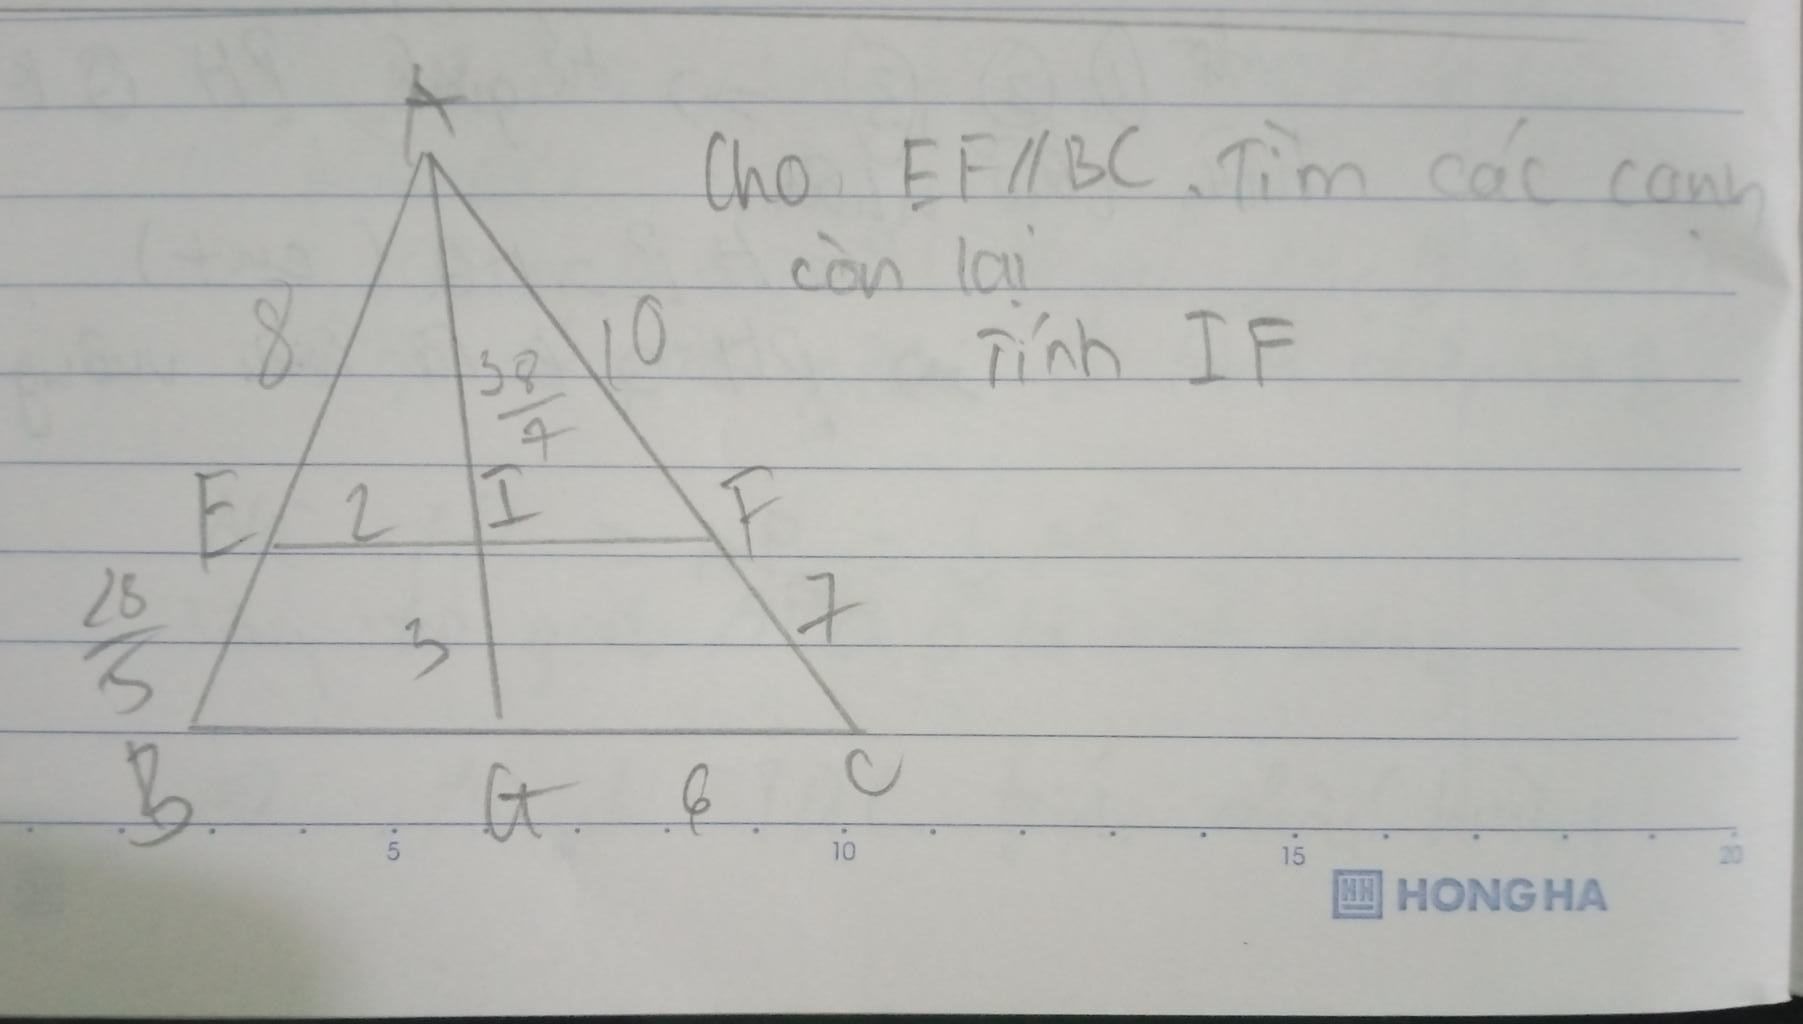 A
Cho EF//BC. Tìm các cạnh
còn lại
Tính IF
8
10
38
7
E 2 I F
28
5
3
7
B G 6 C
5 10 15 20
HH HONG HA